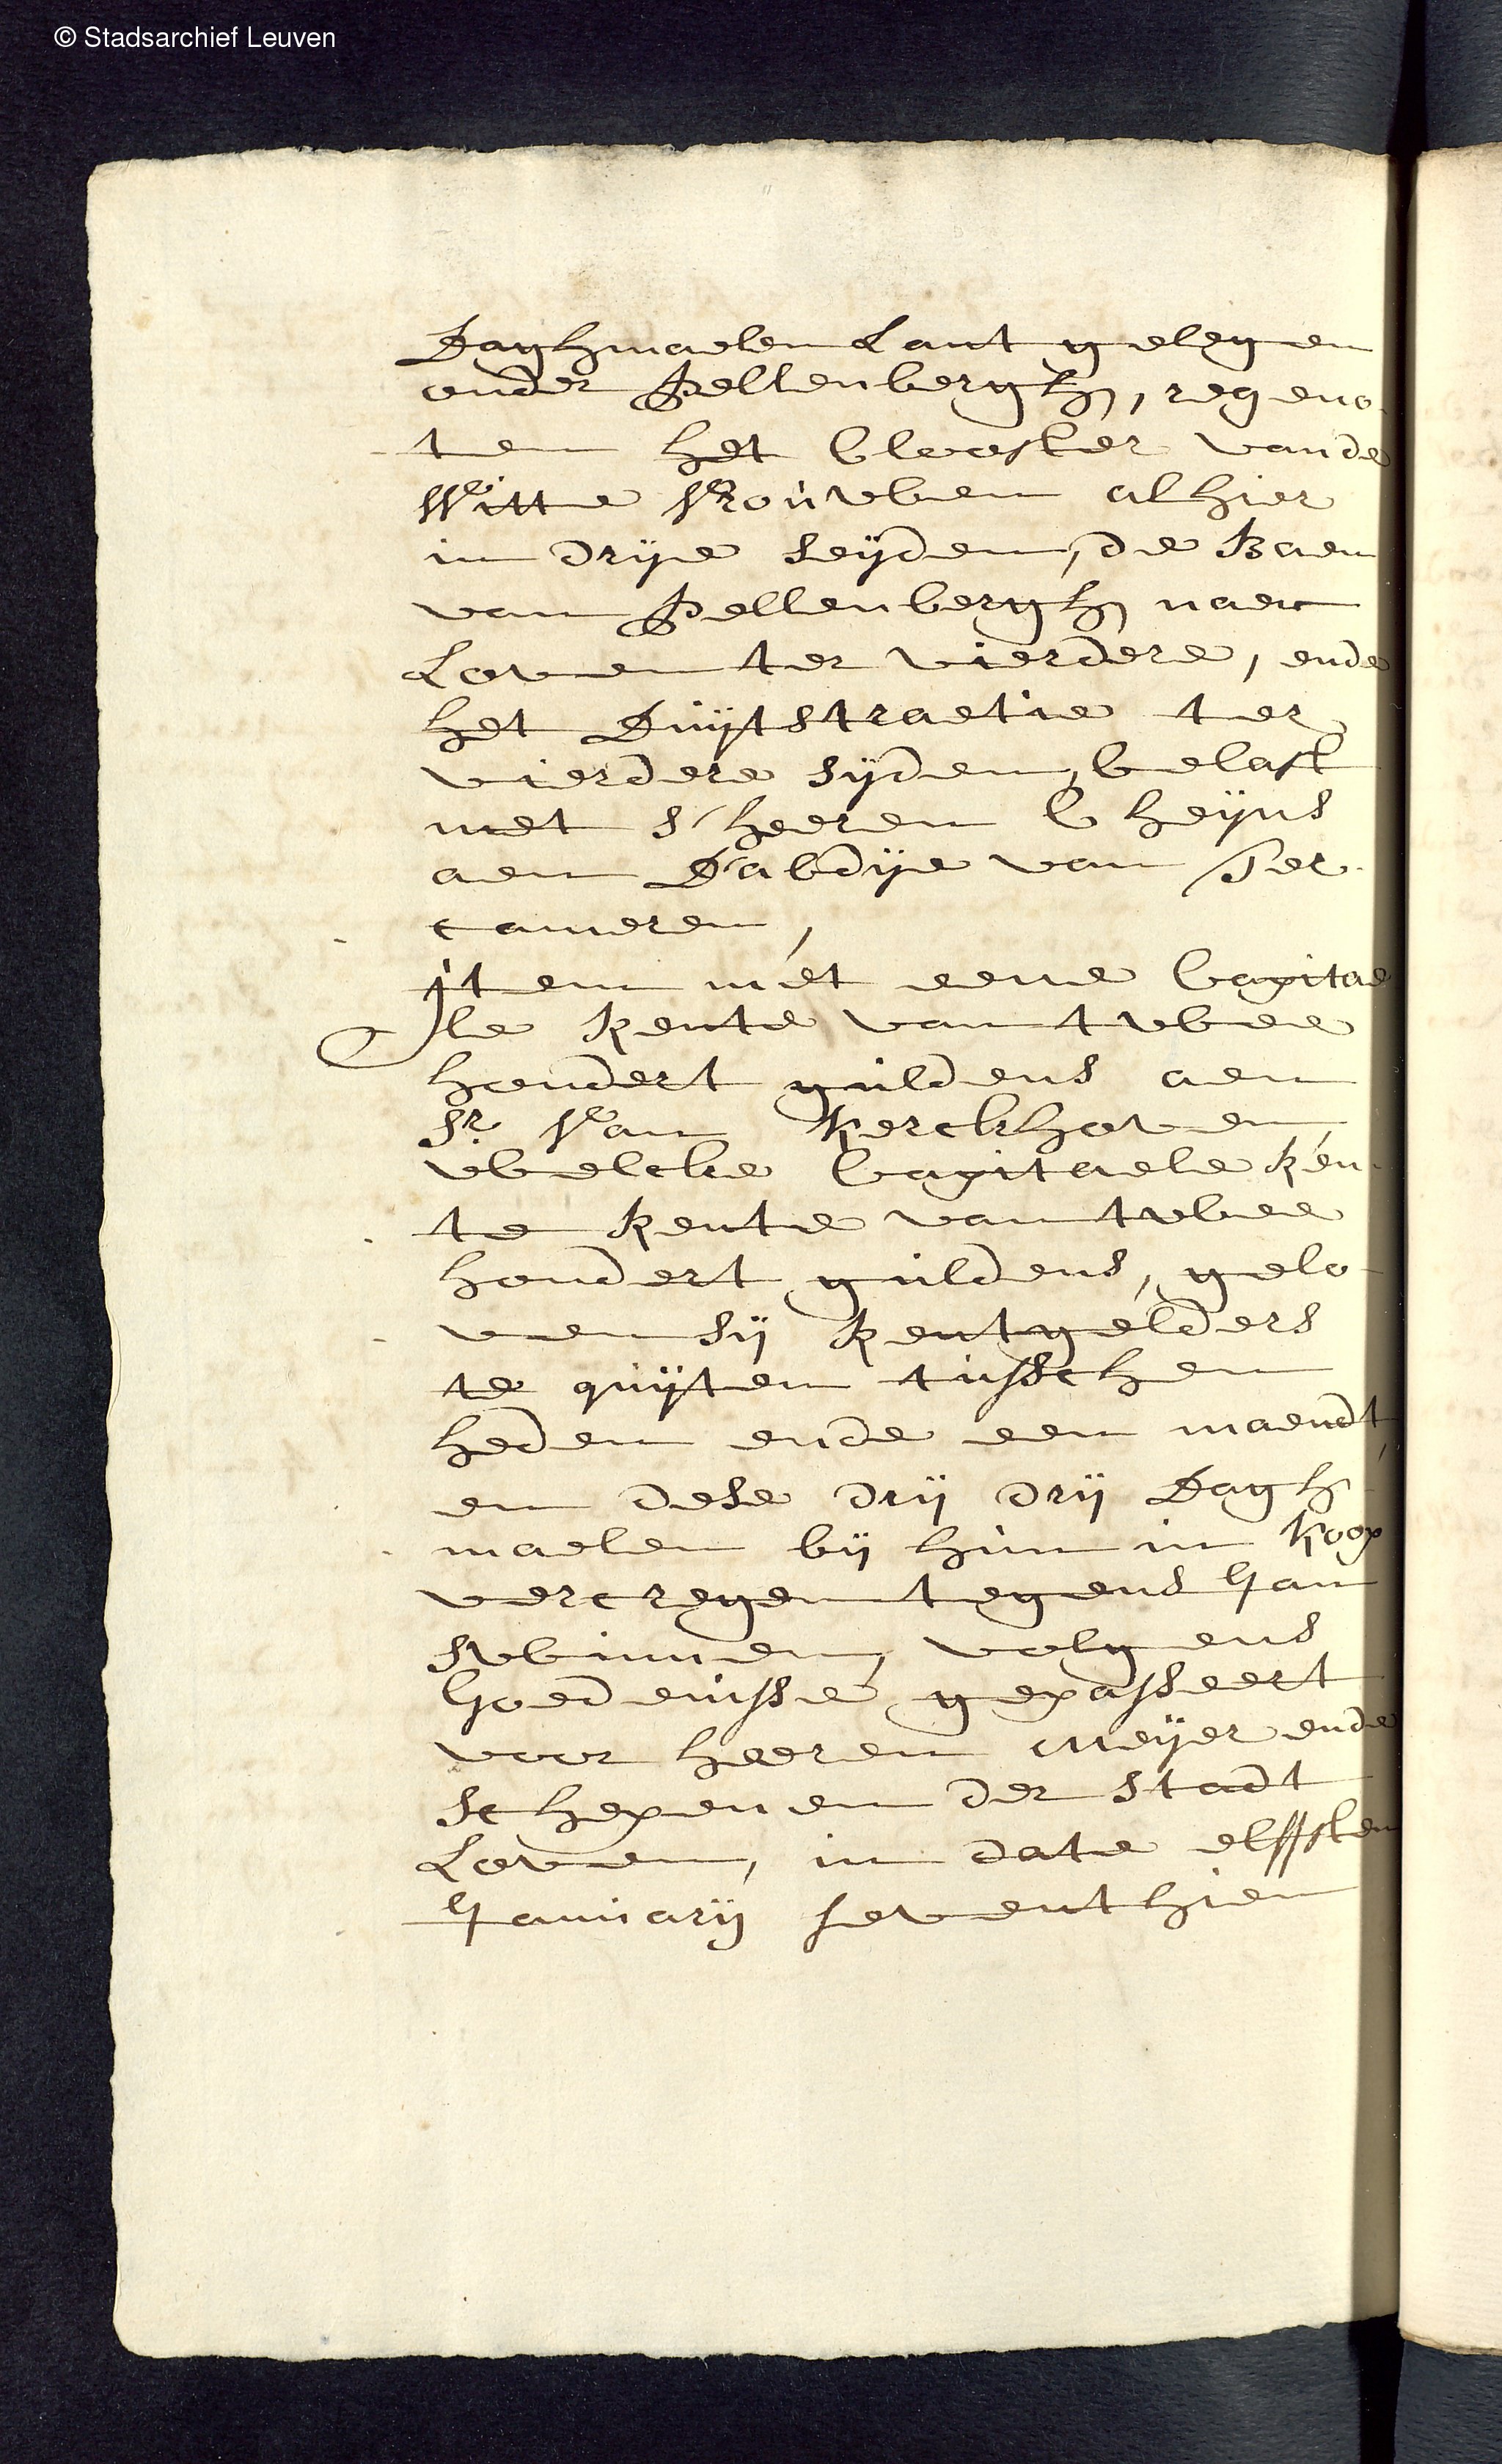 © Stadsarchief Leuven
Daghmaelen Lant gelegen
onder Pellenbergh, regeno-
ten het Clooster vande
Witte Vrouwen alhier
in drije seijden, de Baen
van Pellenbergh naer
Loven ter vierdere, ende
het Duijtstraetie ter
vierdere sijden, belast
met s'heeren Cheijns
aen D'abdije van Ter-
cameren,
item met eene Capitae
le Rente van twee
hondert guldens aen
Sr. Van Kerckhoven
welcke Capitaele Ren-
te Rente van twee
hondert guldens, gelo-
ven sij Rentgelders
te quijten tusschen
heden ende een maendt,
en dese drij drij Dagh-
maelen bij hun in Koop
vercregen tegens Jan
Swinnen, volgens
Goedenisse gepasseert
voor heeren Meijer ende
Schepenen der Stadt
Loven, in date elffsten
Januarij seventhien